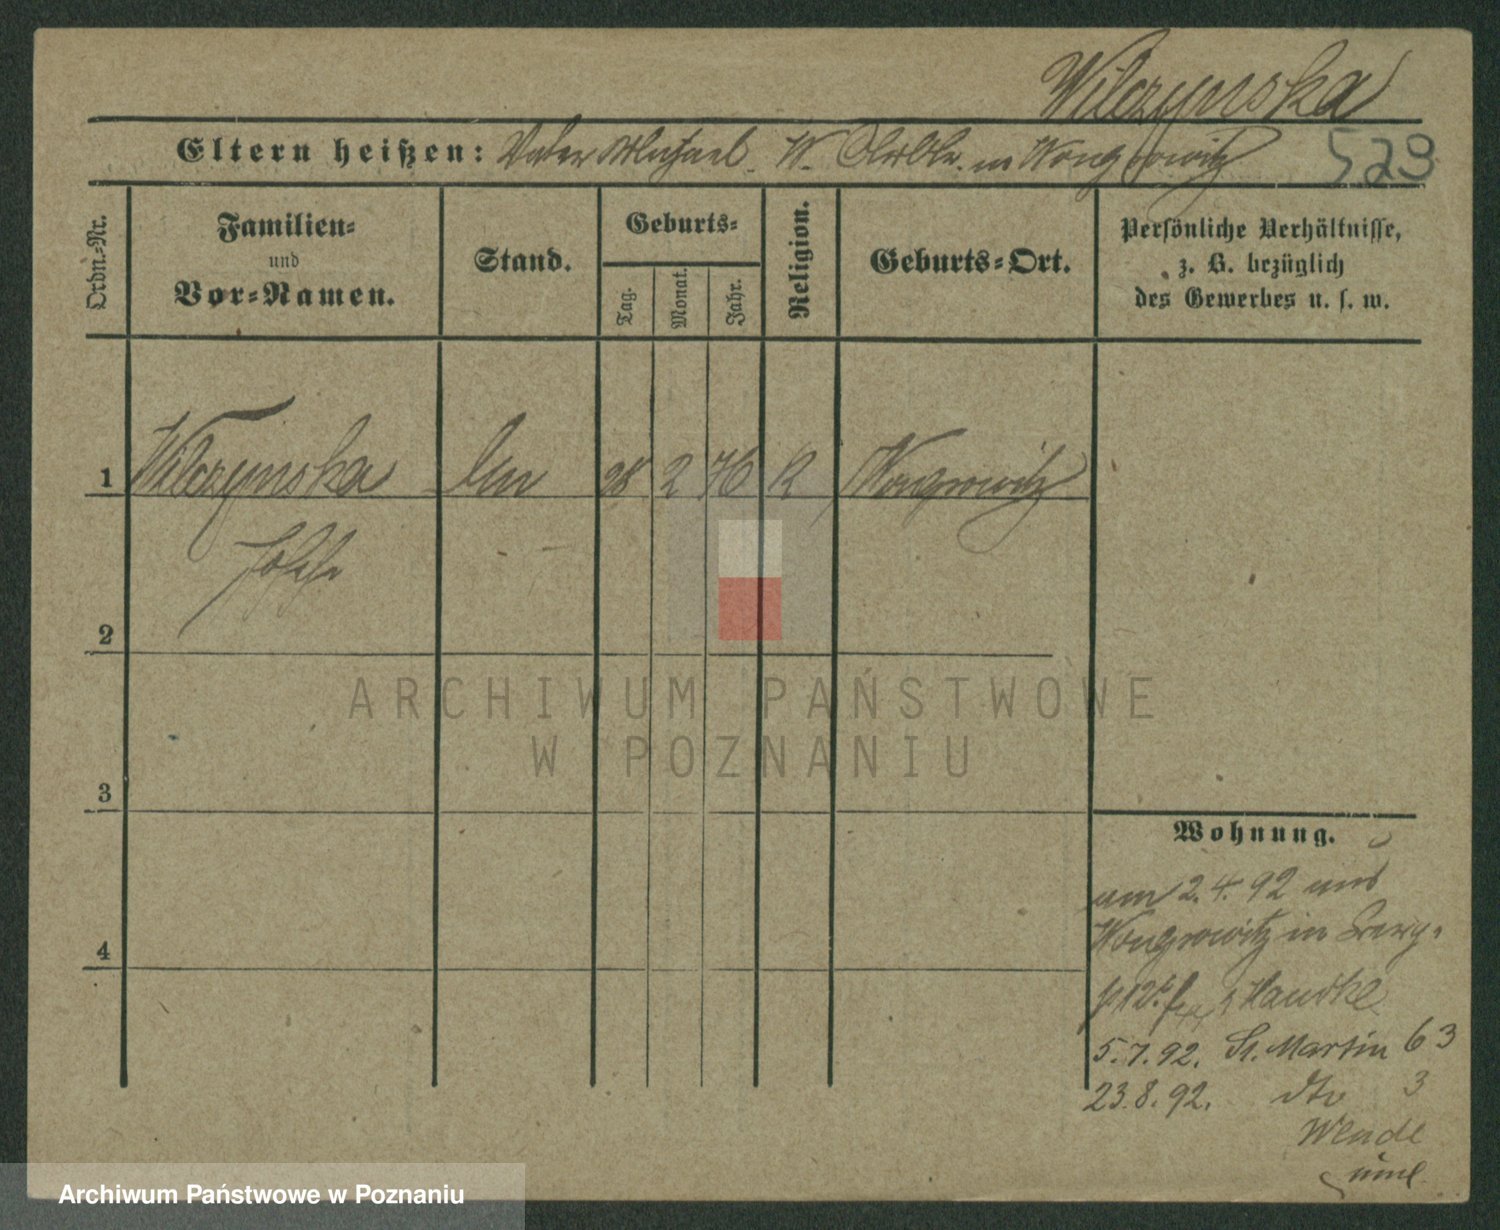 Wilczynska
Eltern heißen: Vater Michael W. in Wongrowitz 523
Ordn.-Nr.
Familien-
und
Vor-Namen.
Stand.
Geburts-
Tag.
Monat.
Jahr.
Religion.
Geburts-Ort.
Persönliche Verhältnisse,
z. B. bezüglich
des Gewerbes u. s. w.
1 Wilczynska 28 2 76 K Wongrowitz
2
ARCHIWUM PAŃSTWOWE
W POZNANIU
3
Wohnung.
am 2.4.92 aus
4
Wongrowitz in
Handke
5.7.92. St. Martin 63
23.8.92. dto 3
Wende
Archiwum Państwowe w Poznaniu